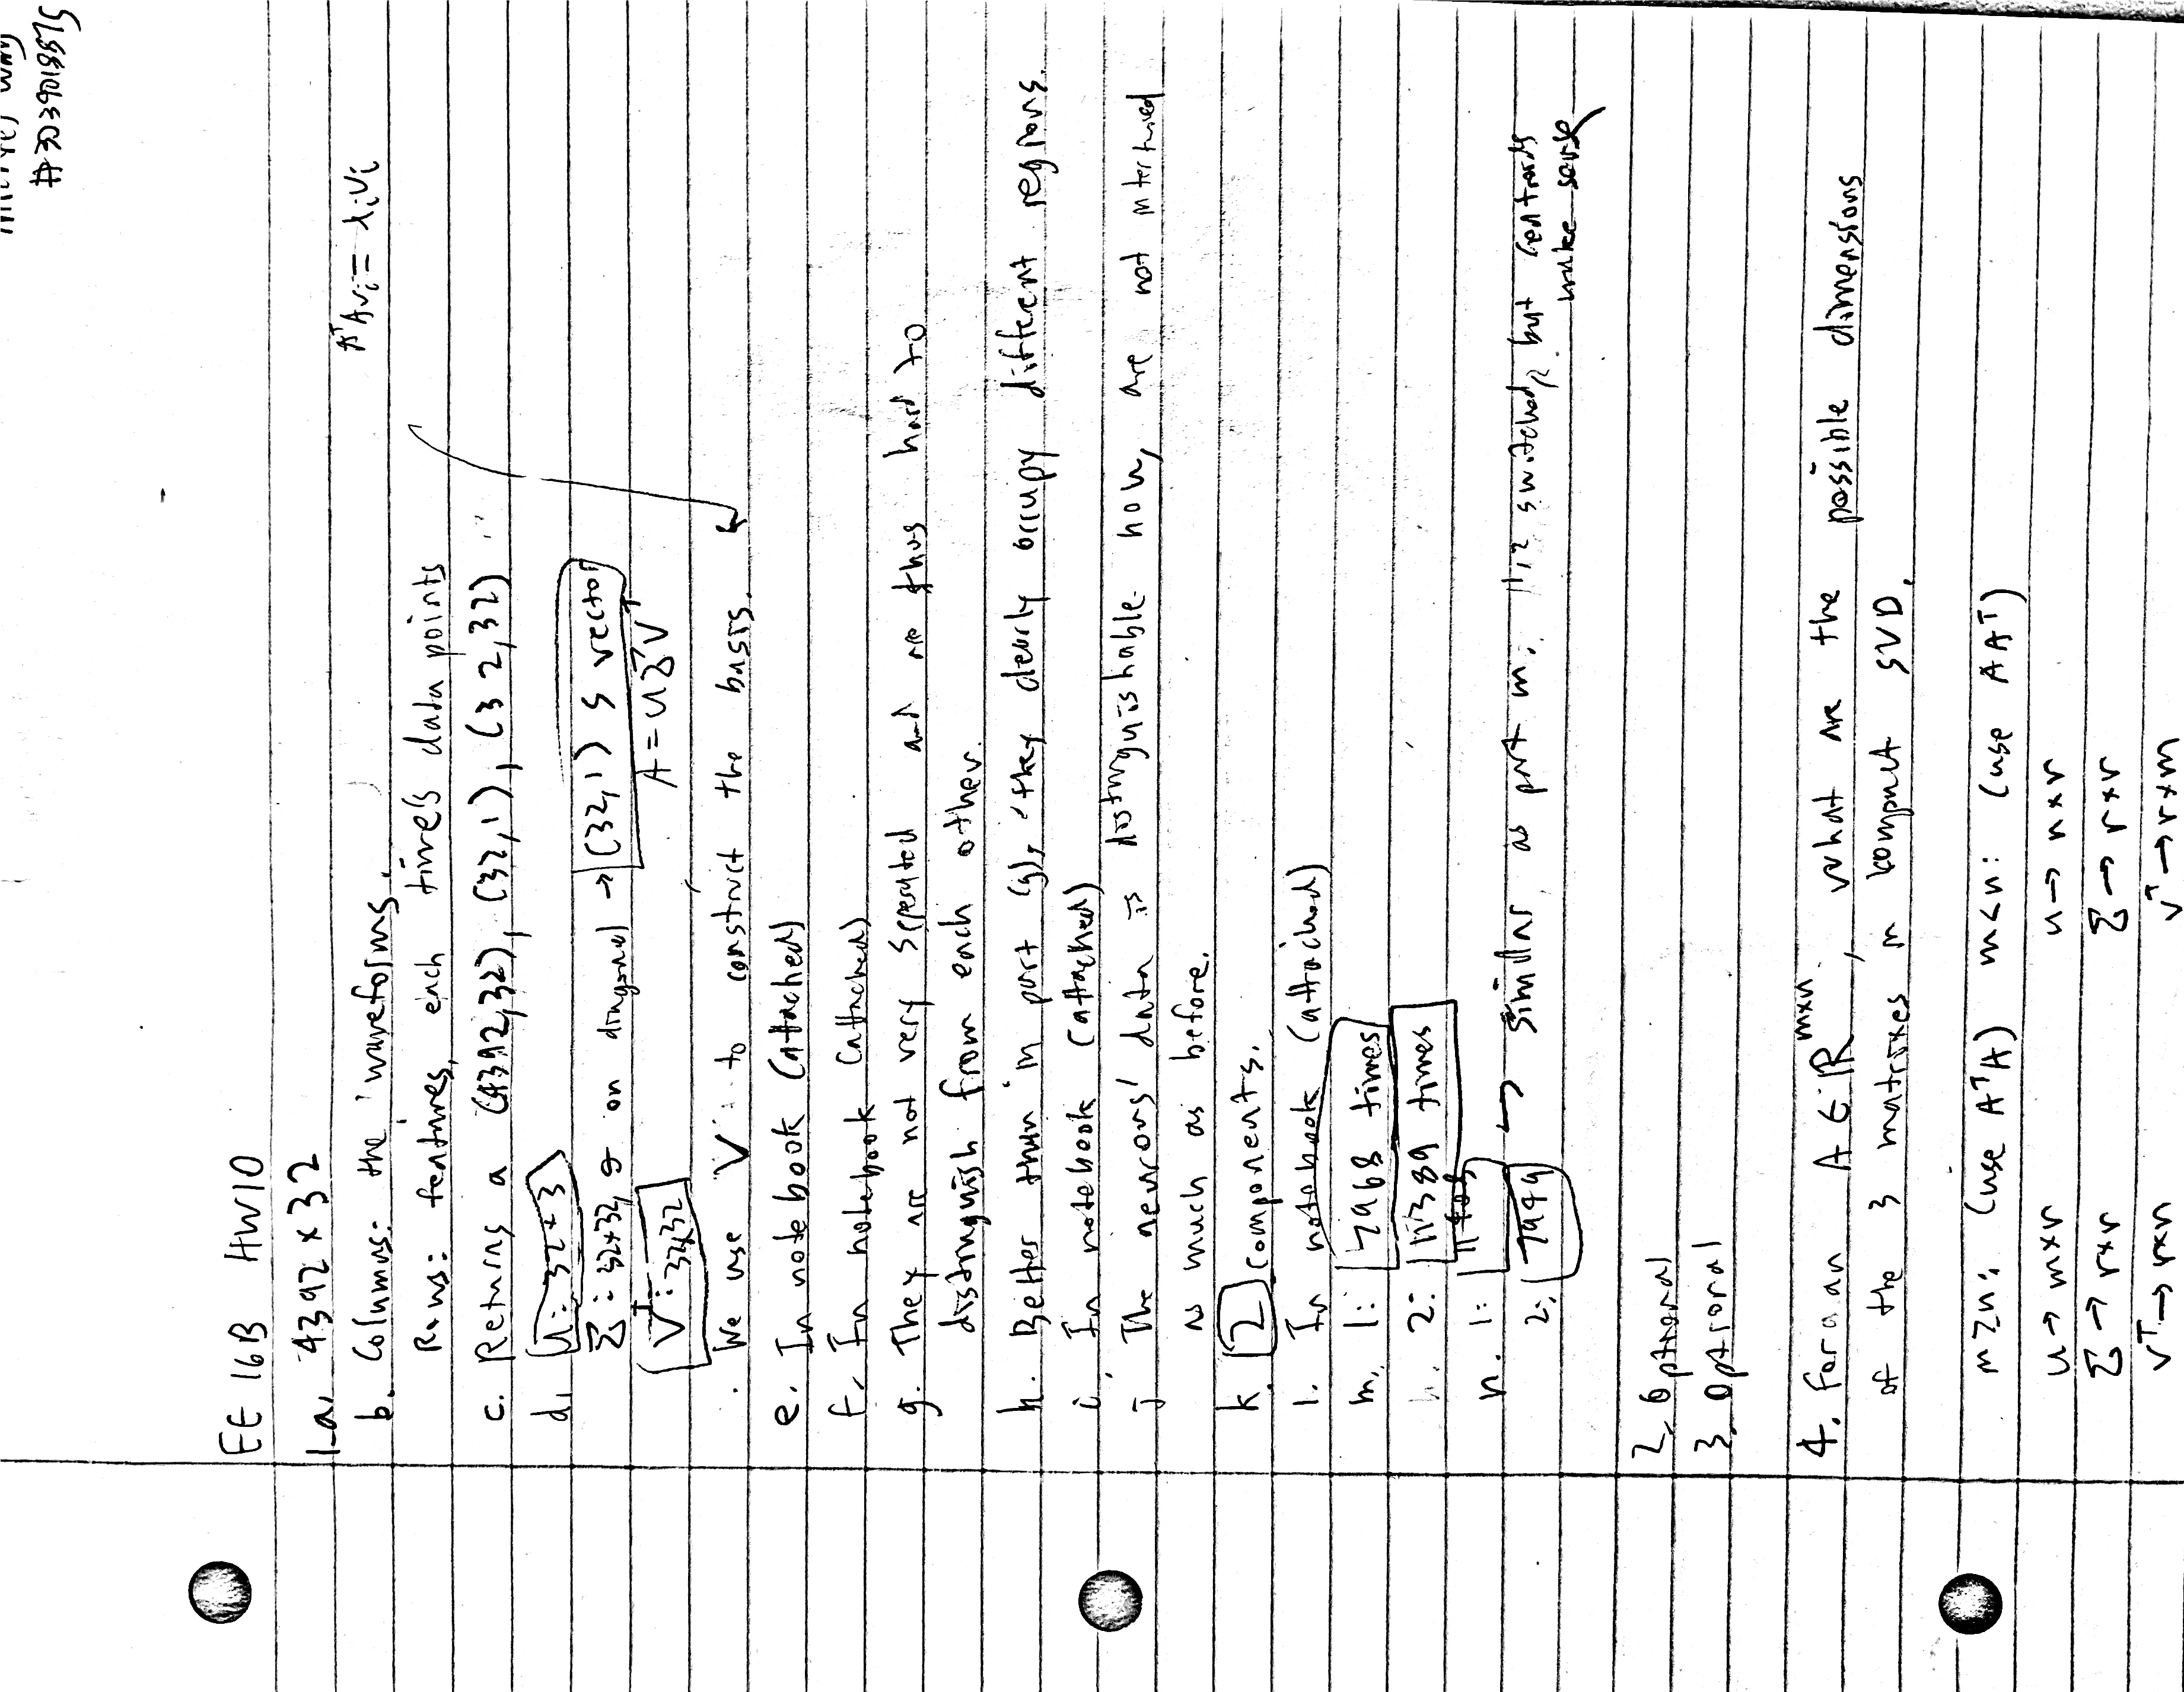 #3039018875
EE 16B HW10
1.a. 4392 × 32
AᵀAvᵢ = λᵢvᵢ
b. Columns: the waveforms.
Rows: features, each time's data points
c. Returns a (4392,32), (32,1), (32,32)
d. U: 32×3
Σ: 32×32, σ on diagonal → (32,1) S vector
Vᵀ: 32×32 A = UΣVᵀ
We use V to construct the basis.
e. In notebook (attached)
f. In notebook (attached)
g. They are not very seperated and are thus hard to
distinguish from each other.
h. Better than in part (g), they clearly occupy different regions.
i. In notebook (attached)
j The neurons' data is distinguishable now, are not intertwined
as much as before.
k. 2 components.
l. In notebook (attached)
m. 1: 7968 times
2: 11389 times
n. 1: 11408
2: 7949 → similar as part m. 1,2 switched, but centroids
make sense
2. Optional
3. Optional
4. For a an A ∈ ℝᵐˣⁿ, what are the possible dimensions
of the 3 matrixes in compact SVD.
m≥n: (use AᵀA) m<n: (use AAᵀ)
U → m×r U → n×r
Σ → r×r Σ → r×r
Vᵀ → r×n Vᵀ → r×m